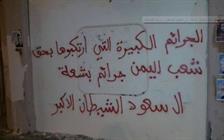 الجرائم الكبيرة التي ارتكبوها بحق
شعب اليمن جرائم بشعة
ال سعود الشيطان الاكبر